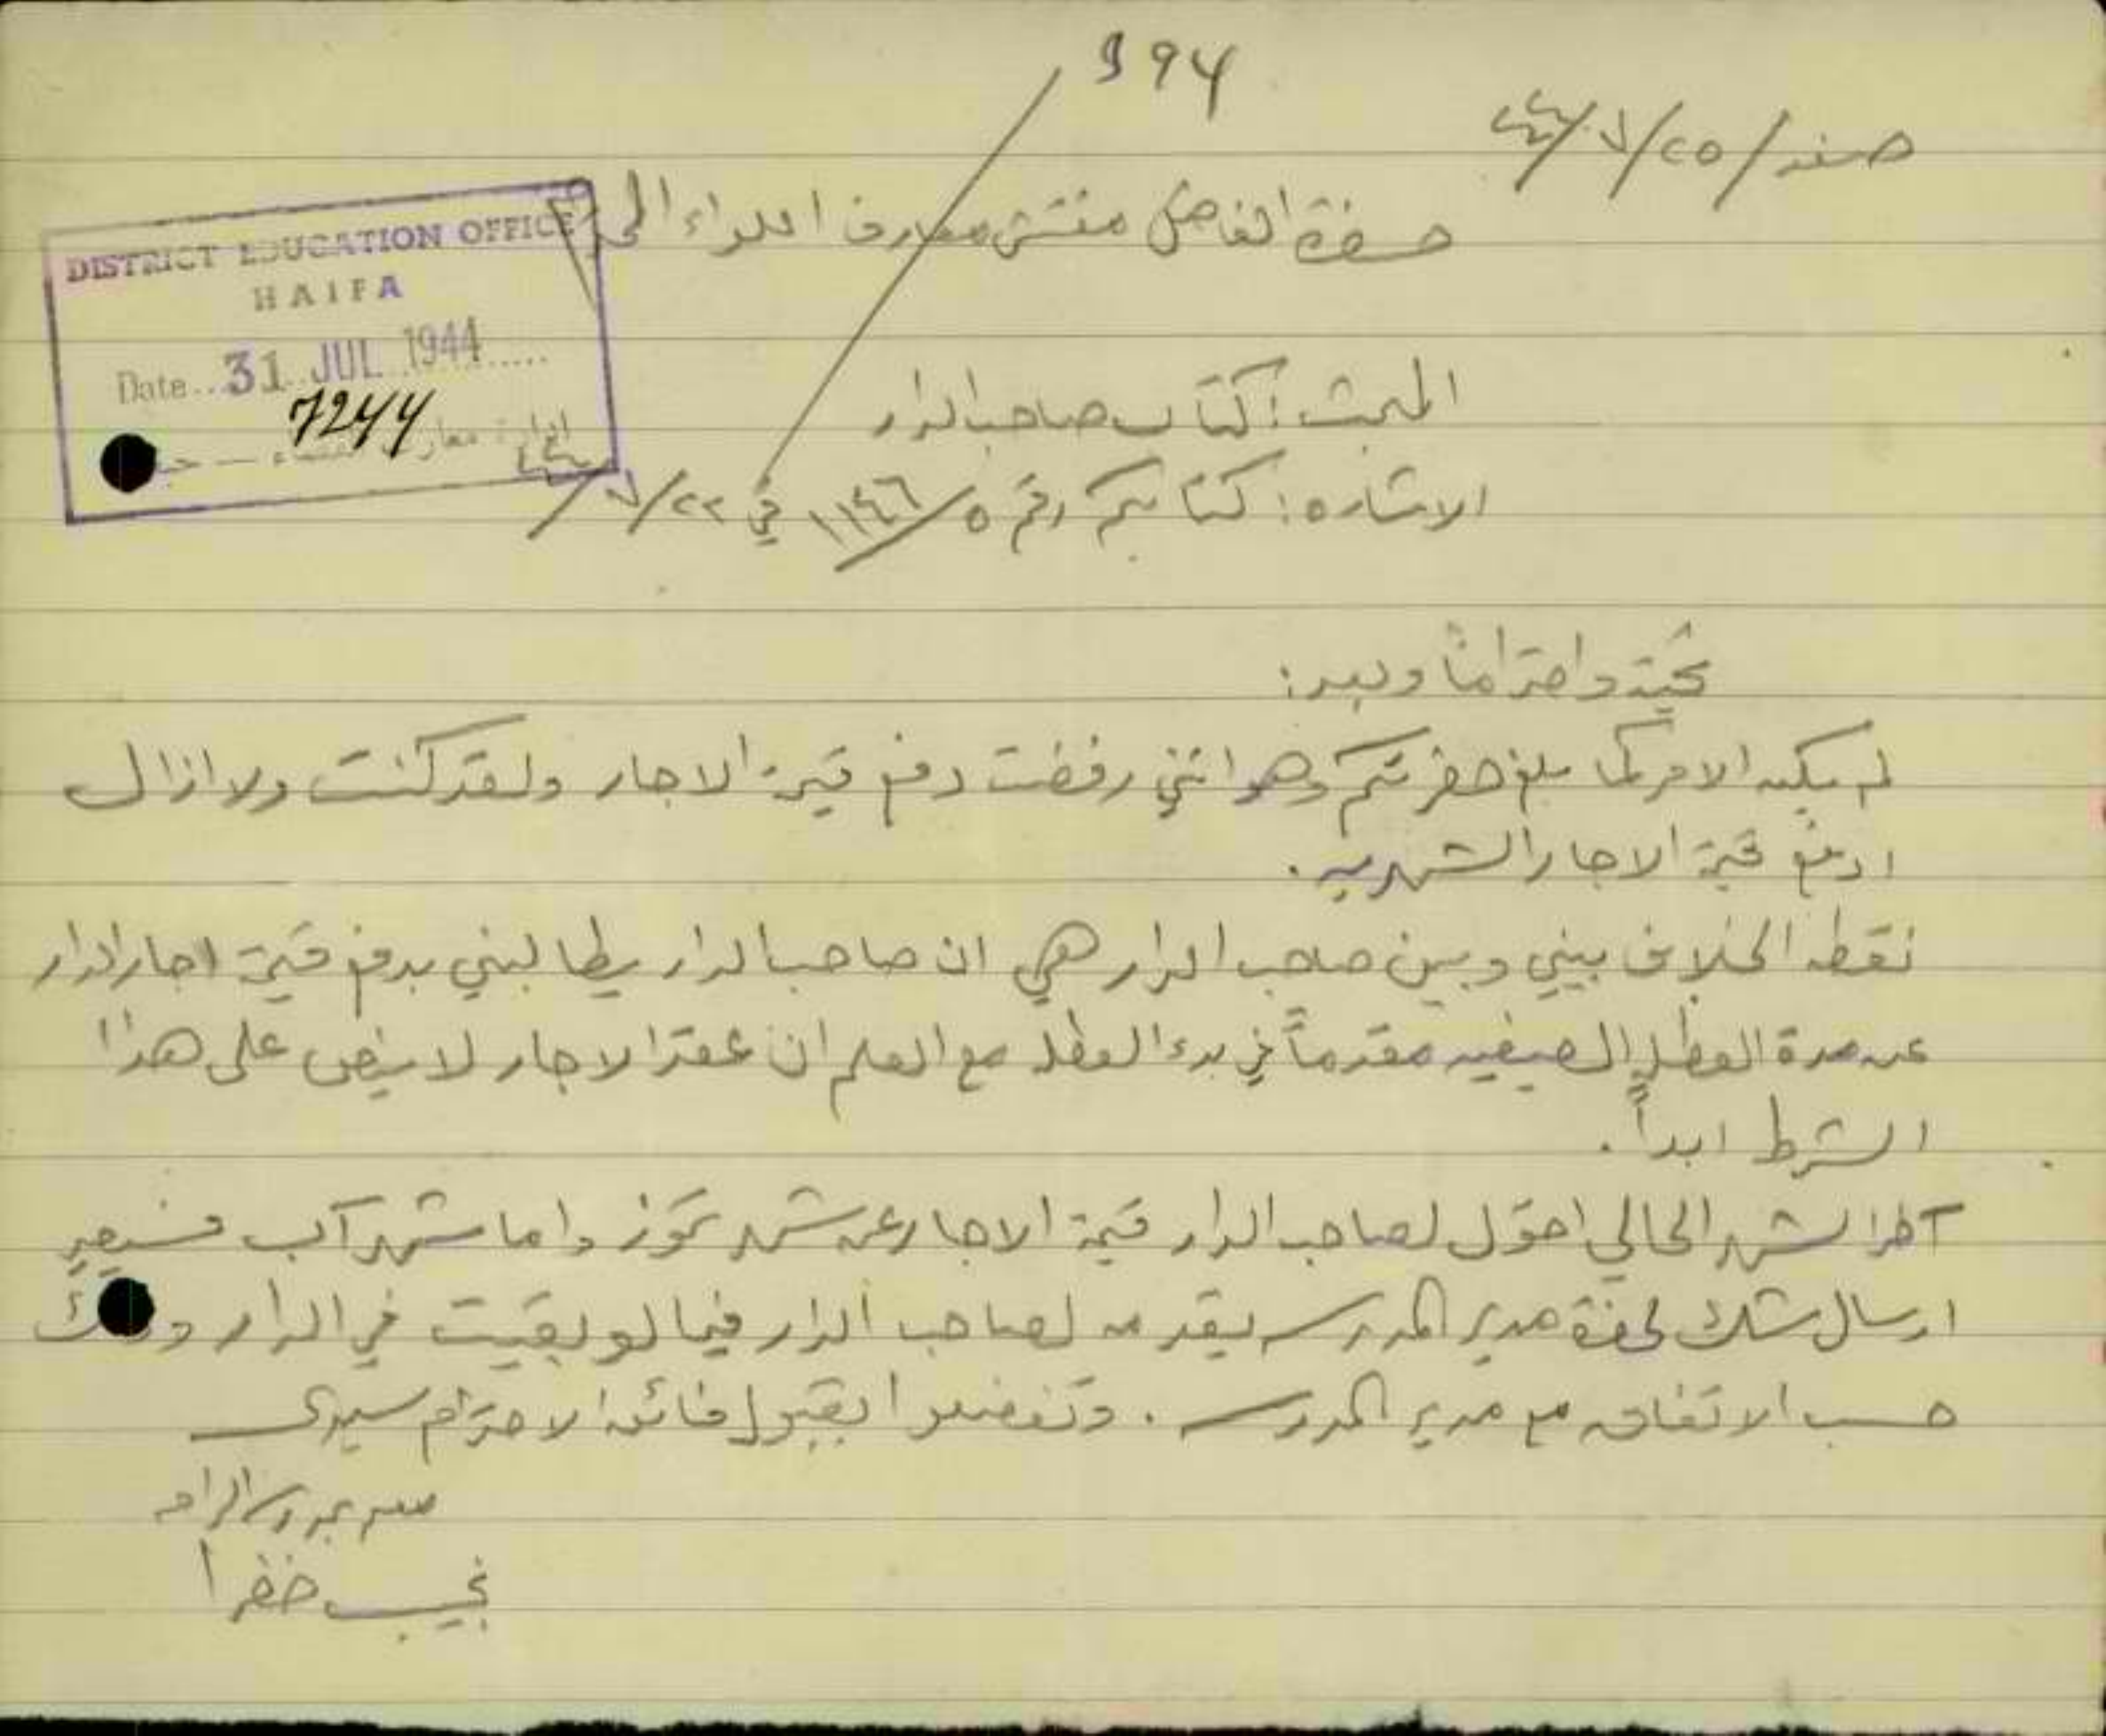 394
صفد/ ٢٥/ ٧/ ٤٤
حضرة الفاضل مفتش معارف اللواء المحترم
DISTRICT EDUCATION OFFICE
HAIFA
Date...31 JUL 1944.....
7244
ادارة معارف
المبحث: كتاب صاحب الدار
الاشاره: كتابكم رقم ٥/ ١١٤٦ في ٢٢/ ٧/ ٤٤
تحية واحتراماً وبعد:
لم يكن الامر كما بلغ حضرتكم وهو انني رفضت دفع قيمة الاجار ولقد كنت ولا ازال
ادفع قيمة الاجار الشهريه.
نقطه الخلاف بيني وبين صاحب الدار هي ان صاحب الدار يطالبني بدفع قيمة اجار الدار
عن مدة العطله الصيفيه مقدماً في بدء العطله مع العلم ان عقد الاجار لا ينص على هذا
الشرط ابداً.
آخر الشهر الحالي احوّل لصاحب الدار قيمة الاجار عن شهر تموز واما شهر آب فسيصير
ارسال شك لحضرة مدير المدرسه يقدمه لصاحب الدار فيما لو بقيت في الدار وذلك
حسب الاتفاق مع مدير المدرسه. وتفضلوا بقبول فائق الاحترام سيدي
معلم بمدرسة الرامه
نجيب خضرا